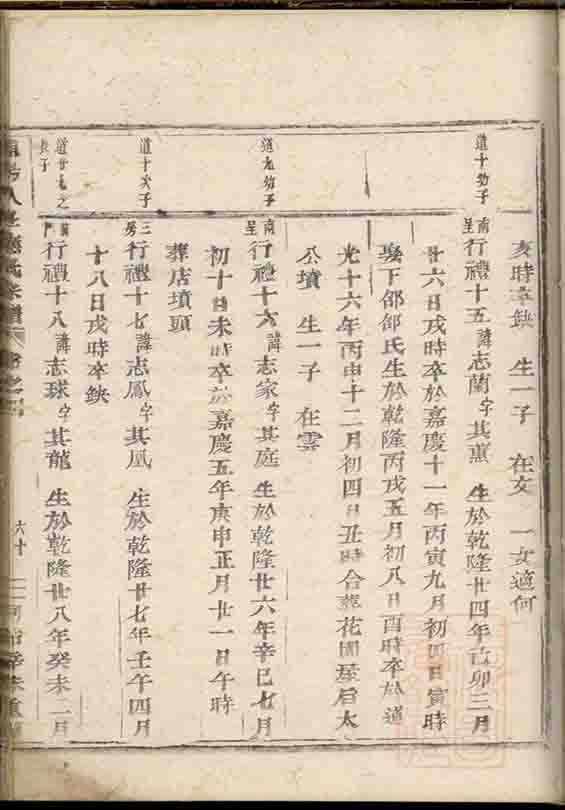 亥時卒缺 生一子 在文 一女適何
道十幼子
南呈行禮十五諱志蘭字其薰 生於乾隆廿四年己卯三月
廿六日戌時卒於嘉慶十一年丙寅九月初四日寅時
娶下邵邵氏生於乾隆丙戌五月初八日酉時卒於道
光十六年丙申十二月初四日丑時合葬花園屋后太
公墳 生一子 在雲
道九幼子
南呈行禮十六諱志家字其庭 生於乾隆廿六年辛巳七月
初十日未時卒於嘉慶五年庚申正月廿一日午時
葬店墳頭
道十次子
三房行禮十七諱志鳳字其凰 生於乾隆廿七年壬午四月
十八日戌時卒缺
道廿九之長子
行禮十八諱志球字其龍 生於乾隆廿八年癸未二月
六十